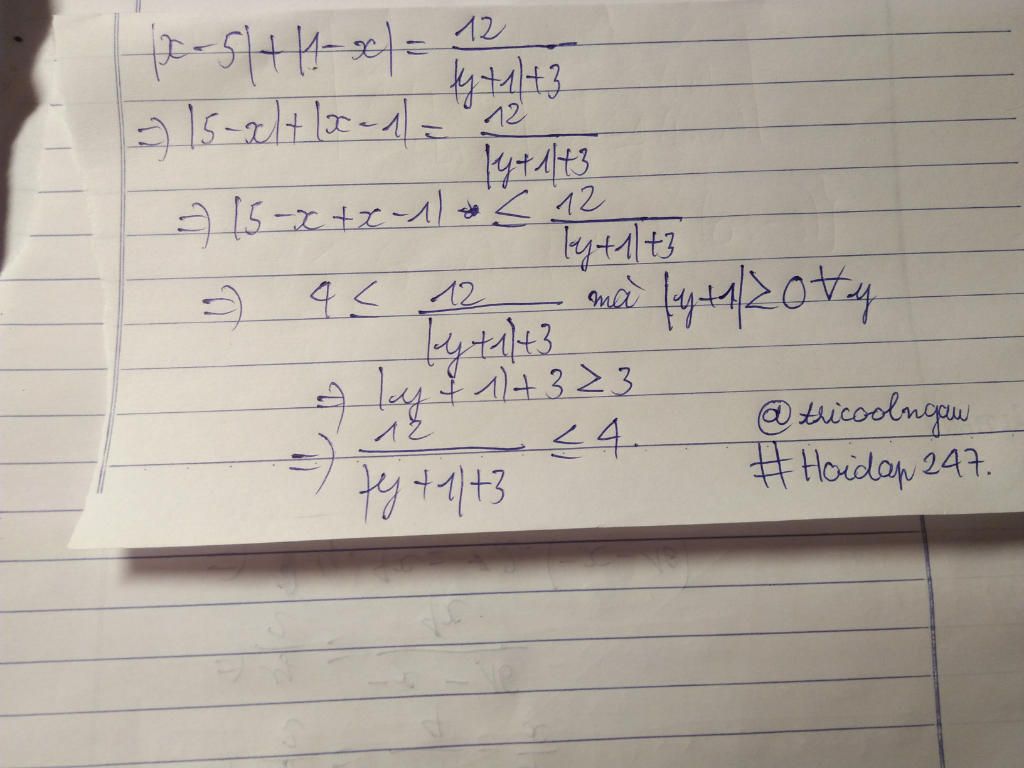 |x-5|+|1-x| = 12/(|y+1|+3)
=> |5-x|+|x-1| = 12/(|y+1|+3)
=> |5-x+x-1| ≤ 12/(|y+1|+3)
=> 4 ≤ 12/(|y+1|+3) mà |y+1| ≥ 0 ∀y
=> |y+1|+3 ≥ 3
=> 12/(|y+1|+3) ≤ 4.
@tricoolngau
#Hoidap247.